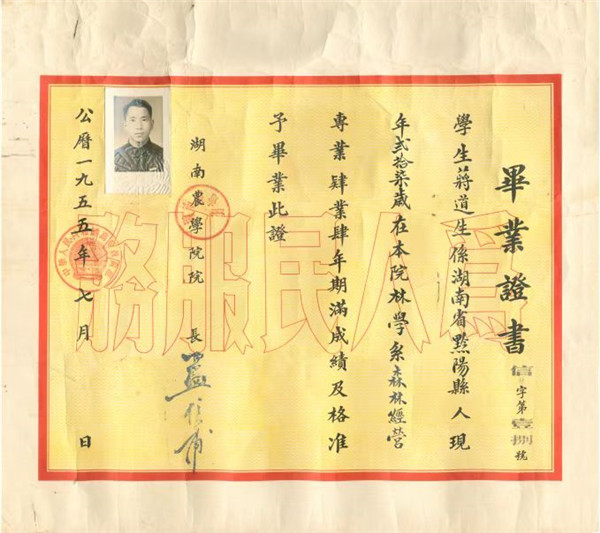 畢業證書
信字第壹捌號
學生蔣道生係湖南省黔陽縣人現
年弍拾柒歲在本院林學系森林經營
專業肄業肆年期滿成績及格准
予畢業此證
湖南農學院院長
公曆一九五五年七月 日
爲人民服務